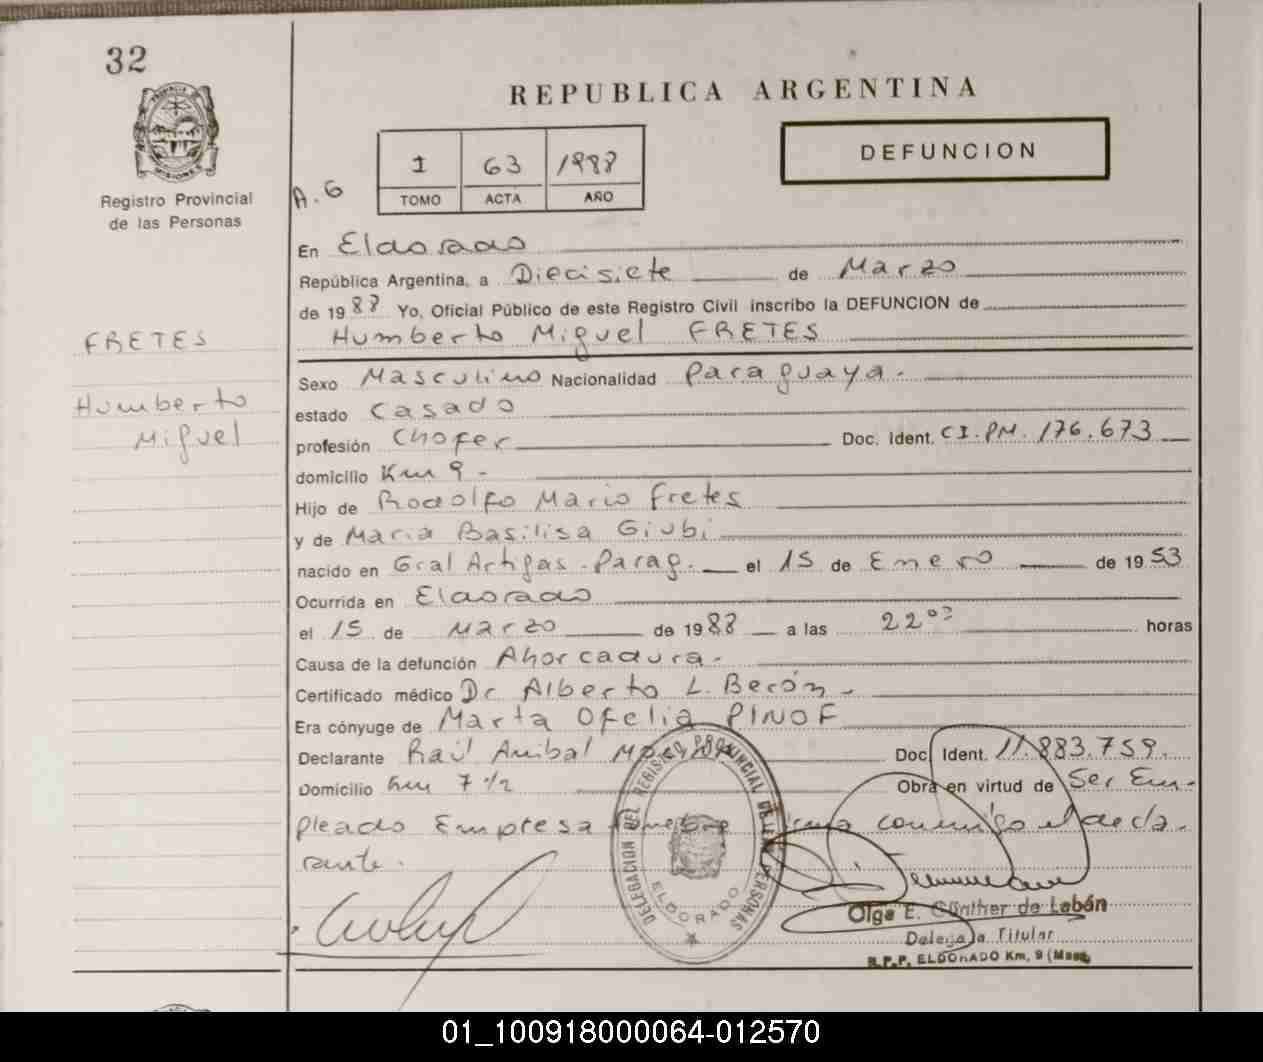 32
REPUBLICA ARGENTINA
DEFUNCION
Registro Provincial
de las Personas
PROVINCIA DE MISIONES
A. G
1 63 1988
TOMO ACTA AÑO
En Eldorado
República Argentina, a Diecisiete de Marzo
de 1988 Yo, Oficial Público de este Registro Civil inscribo la DEFUNCION de
Humberto Miguel FRETES
FRETES
Humberto
Miguel
Sexo Masculino Nacionalidad Paraguaya.
estado Casado
profesión Chofer Doc. Ident. CI. PM. 176.673
domicilio Km 9 -
Hijo de Rodolfo Mario Fretes
y de Maria Basilisa Giubi
nacido en Gral Artigas - Parag. el 15 de Enero de 1953
Ocurrida en Eldorado
el 15 de Marzo de 1988 a las 22 horas
Causa de la defunción Ahorcadura.
Certificado médico Dr Alberto L. Berón -
Era cónyuge de Marta Ofelia PINOF
Declarante Raúl Anibal Doc. Ident. 11.883.759.
Domicilio Km 7 1/2 Obra en virtud de Ser Em-
pleado Empresa Funebre firma conmigo el decla-
rante.
DELEGACION DEL REGISTRO PROVINCIAL DE LAS PERSONAS
ELDORADO
Olga E. Günther de Labán
Delegada Titular
R.P.P. ELDORADO Km. 9 (Mnes.
01_100918000064-012570